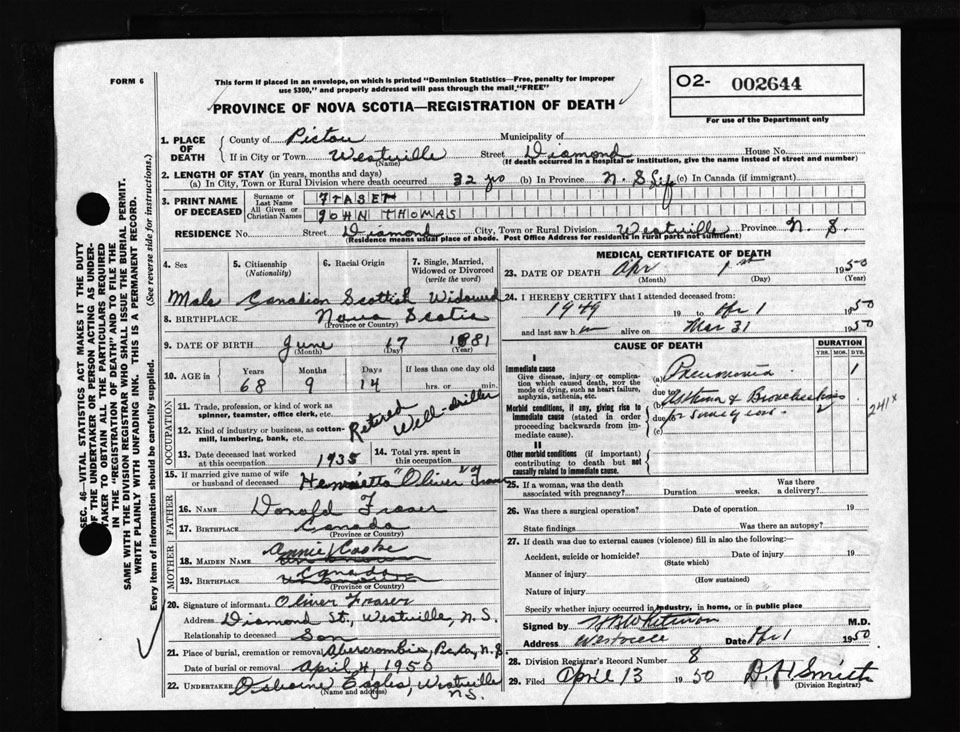 FORM 6
This form if placed in an envelope, on which is printed "Dominion Statistics—Free, penalty for improper
use $300," and properly addressed will pass through the mail "FREE"
O2- 002644
For use of the Department only
PROVINCE OF NOVA SCOTIA—REGISTRATION OF DEATH
1. PLACE OF DEATH County of Pictou Municipality of
If in City or Town Westville (Name) Street Diamond House No.
(If death occurred in a hospital or institution, give the name instead of street and number)
2. LENGTH OF STAY (in years, months and days)
(a) In City, Town or Rural Division where death occurred 32 yrs (b) In Province N. S. Life (c) In Canada (if immigrant)
3. PRINT NAME OF DECEASED Surname or Last Name FRASER
All Given or Christian Names JOHN THOMAS
RESIDENCE No. Street Diamond City, Town or Rural Division Westville Province N. S.
(Residence means usual place of abode. Post Office Address for residents in rural parts not sufficient)
4. Sex 5. Citizenship (Nationality) 6. Racial Origin 7. Single, Married, Widowed or Divorced (write the word)
Male Canadian Scottish Widowed
8. BIRTHPLACE Nova Scotia
(Province or Country)
9. DATE OF BIRTH June 17 1881
(Month) (Day) (Year)
10. AGE in Years Months Days If less than one day
68 9 14 hrs. or min.
OCCUPATION
11. Trade, profession, or kind of work as spinner, teamster, office clerk, etc.
Retired Well-driller
12. Kind of industry or business, as cotton-mill, lumbering, bank, etc.
13. Date deceased last worked at this occupation 1935 14. Total yrs. spent in this occupation
15. If married give name of wife or husband of deceased Henrietta "Oliver"
FATHER
16. NAME Donald Fraser
17. BIRTHPLACE Canada
(Province or Country)
MOTHER
18. MAIDEN NAME Annie
19. BIRTHPLACE Canada
(Province or Country)
20. Signature of informant Oliver Fraser
Address Diamond St., Westville, N.S.
Relationship to deceased Son
21. Place of burial, cremation or removal Abercrombie, N.S
Date of burial or removal April 4, 1950
22. UNDERTAKER Osborne Eagles, Westville N.S.
(Name and address)
MEDICAL CERTIFICATE OF DEATH
23. DATE OF DEATH Apr 1st 1950
(Month) (Day)
24. I HEREBY CERTIFY that I attended deceased from:
1949 19 to Apr 1 1950
and last saw h m alive on Mar 31 1950
CAUSE OF DEATH DURATION
YRS. MOS. DYS.
I
Immediate cause
Give disease, injury or complication which caused death, NOT the mode of dying, such as heart failure, asphyxia, asthenia, etc.
(a) Pneumonia 1
due to
Morbid conditions, if any, giving rise to immediate cause (stated in order proceeding backwards from immediate cause).
(b) Asthma & Bronchiectasis
due to for some years 2
(c)
241x
II
Other morbid conditions (if important) contributing to death but not causally related to immediate cause.
25. If a woman, was the death associated with pregnancy? Duration weeks. Was there a delivery?
26. Was there a surgical operation? Date of operation 19
State findings Was there an autopsy?
27. If death was due to external causes (violence) fill in also the following:—
Accident, suicide or homicide? Date of injury 19
(State which)
Manner of injury
(How sustained)
Nature of injury
Specify whether injury occurred in industry, in home, or in public place
Signed by M.D.
Address Westville Date Apr 1 1950
28. Division Registrar's Record Number 8
29. Filed April 13 1950 D. H. Smith
(Division Registrar)
SEC. 46—VITAL STATISTICS ACT MAKES IT THE DUTY
OF THE UNDERTAKER OR PERSON ACTING AS UNDERTAKER TO OBTAIN ALL THE PARTICULARS REQUIRED
IN THE "REGISTRATION OF DEATH" AND TO FILE THE
SAME WITH THE DIVISION REGISTRAR WHO SHALL ISSUE THE BURIAL PERMIT.
WRITE PLAINLY WITH UNFADING INK. THIS IS A PERMANENT RECORD.
Every item of information should be carefully supplied. (See reverse side for instructions.)